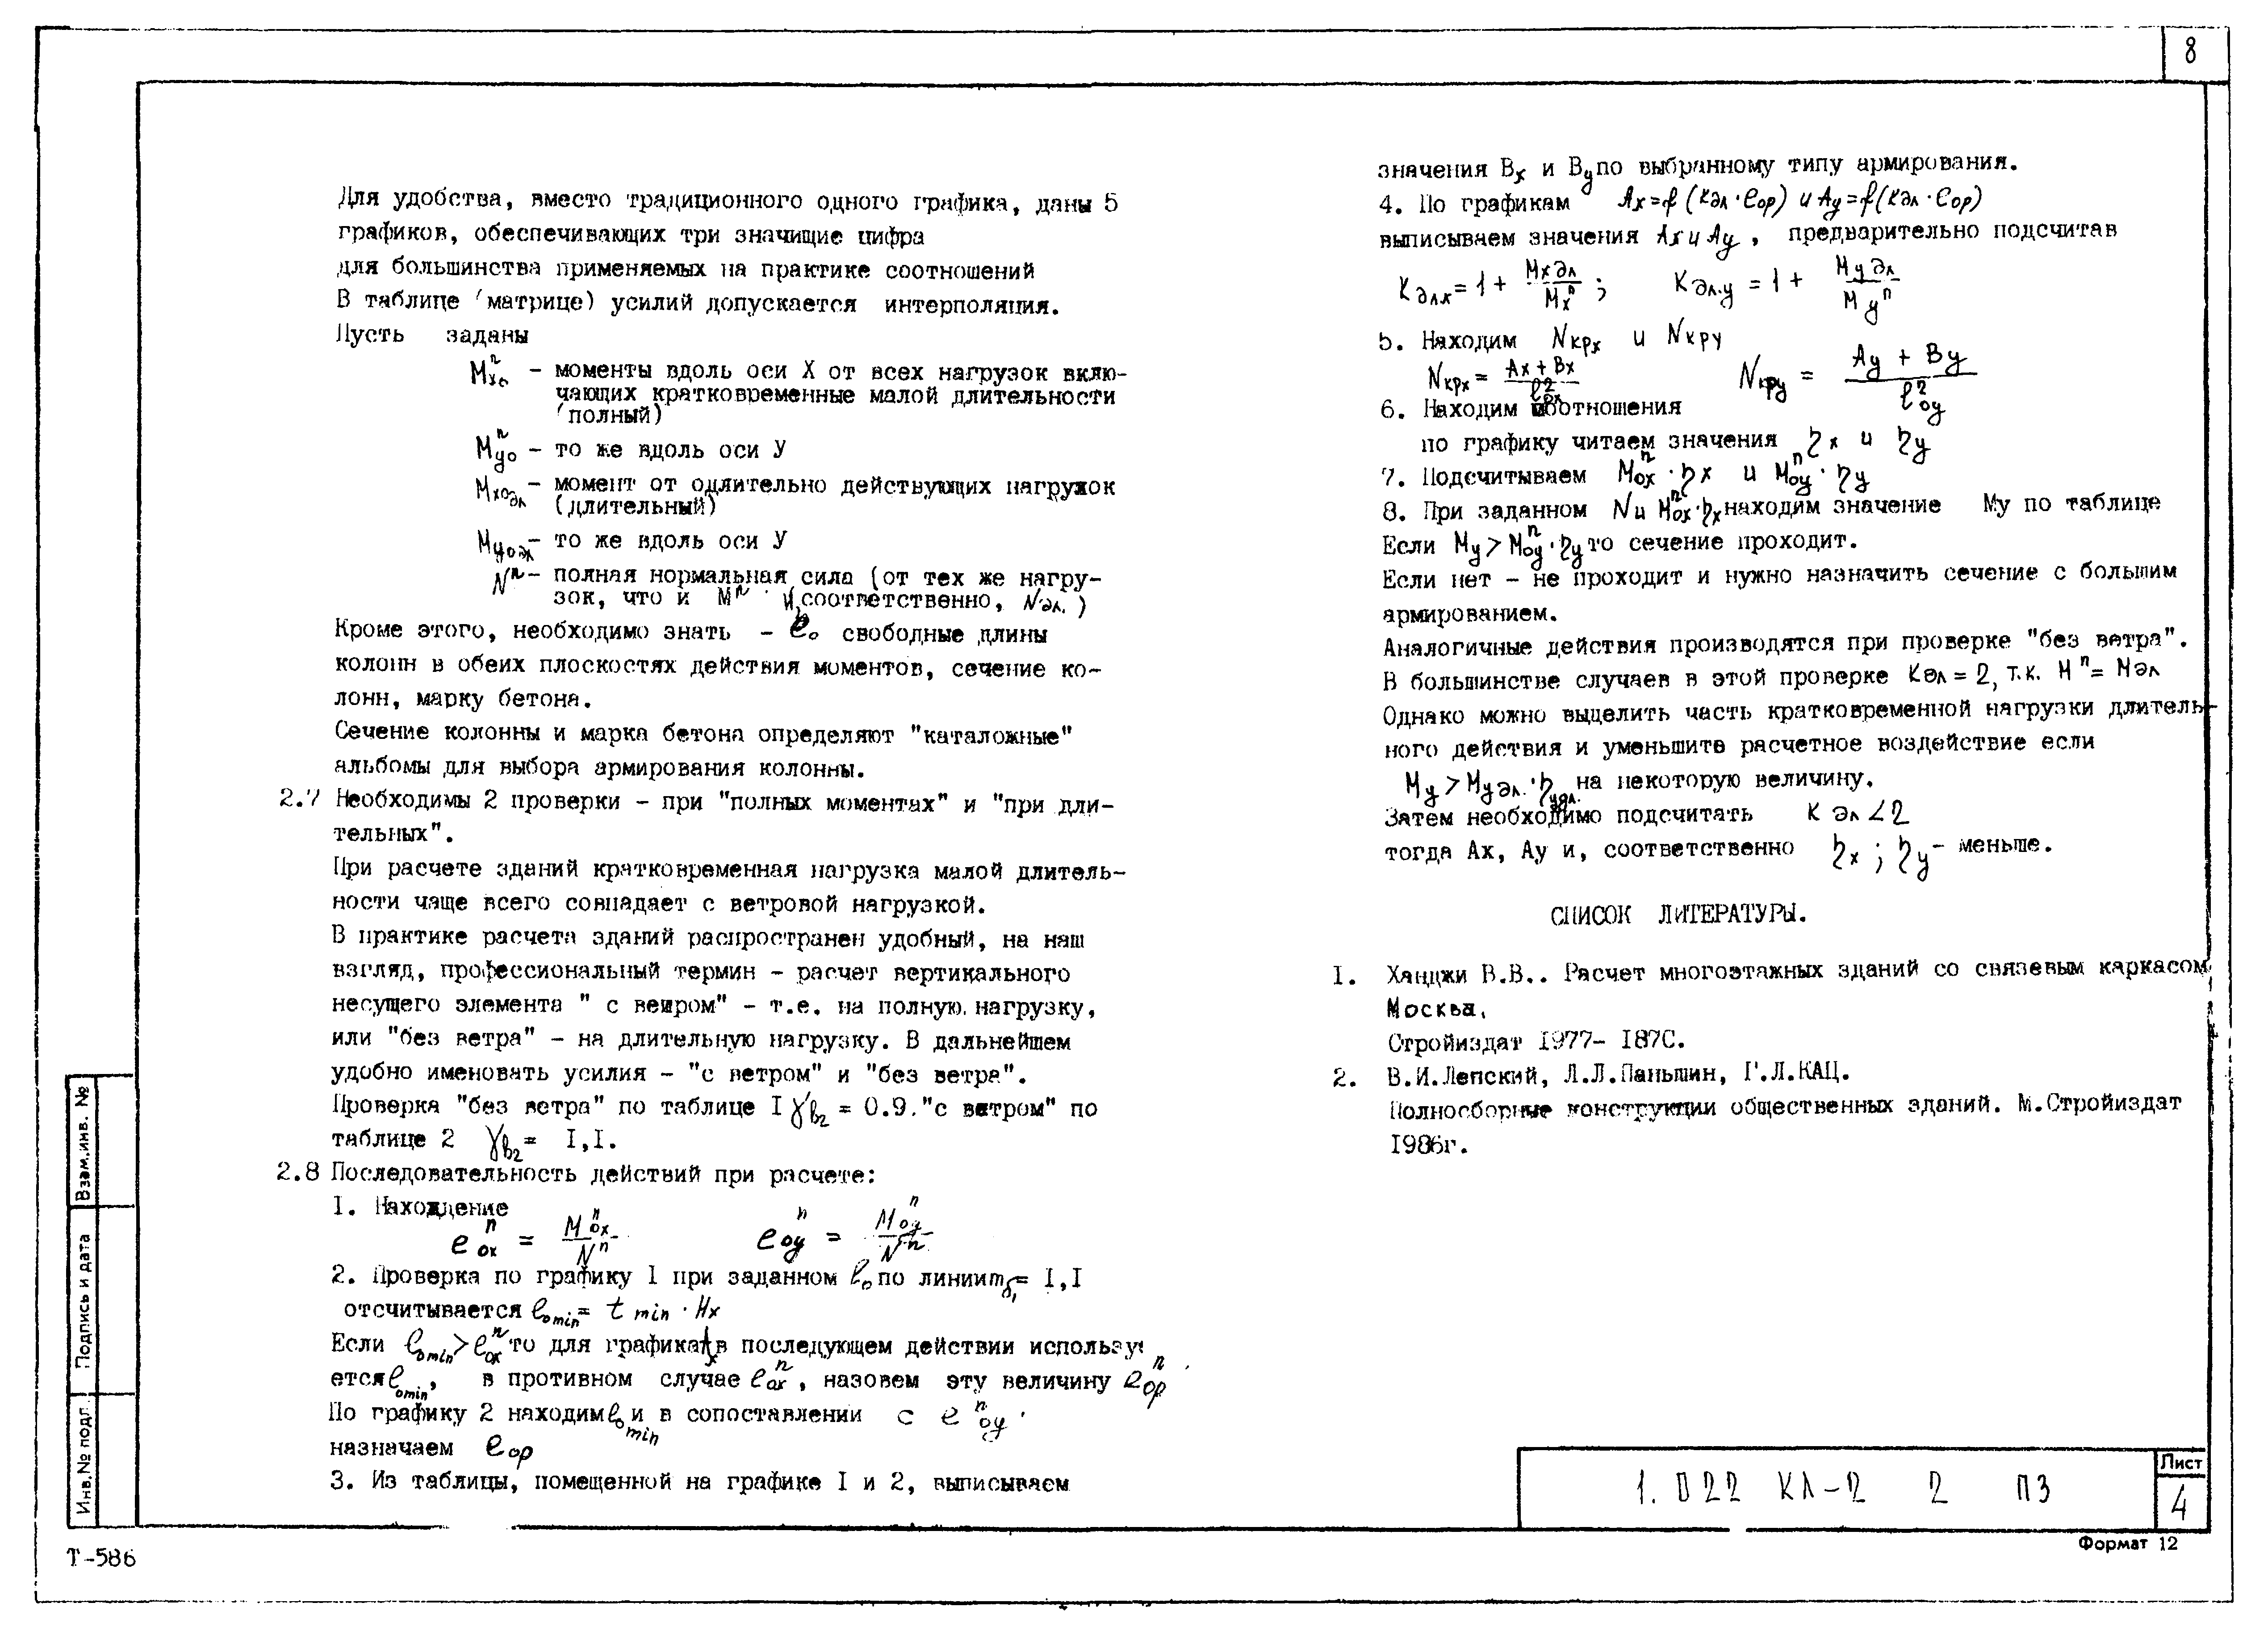 8
Для удобства, вместо традиционного одного графика, даны 5
графиков, обеспечивающих три значищие цифра
для большинства применяемых на практике соотношений
В таблице (матрице) усилий допускается интерполяция.
Пусть заданы
Mⁿxo - моменты вдоль оси X от всех нагрузок вклю-
чающих кратковременные малой длительности
(полный)
Mⁿyo - то же вдоль оси У
Mxoдл - момент от одлительно действующих нагрузок
(длительный)
Myoдл - то же вдоль оси У
Nⁿ - полная нормальная сила (от тех же нагру-
зок, что и Mⁿ и, соответственно, Nдл.)
Кроме этого, необходимо знать - ℓo свободные длины
колонн в обеих плоскостях действия моментов, сечение ко-
лонн, марку бетона.
Сечение колонны и марка бетона определяют "каталожные"
альбомы для выбора армирования колонны.
2.7 Необходимы 2 проверки - при "полных моментах" и "при дли-
тельных".
При расчете зданий кратковременная нагрузка малой длитель-
ности чаще всего совпадает с ветровой нагрузкой.
В практике расчета зданий распространен удобный, на наш
взгляд, профессиональный термин - расчет вертикального
несущего элемента " с ветром" - т.е. на полную нагрузку,
или "без ветра" - на длительную нагрузку. В дальнейшем
удобно именовать усилия - "с ветром" и "без ветра".
Проверка "без ветра" по таблице I γb2 = 0.9."с ветром" по
таблице 2 γb2 = I,I.
2.8 Последовательность действий при расчете:
1. Нахождение
eⁿox = Mⁿox / Nⁿ eⁿoy = Mⁿoy / Nⁿ
2. Проверка по графику 1 при заданном ℓo по линии mγ1 = I,I
отсчитывается ℓomin = t min · Hx
Если ℓomin > ℓⁿox то для графика Ax в последующем действии использу
ется ℓomin, в противном случае ℓⁿox, назовем эту величину eⁿop
По графику 2 находим ℓomin и в сопоставлении с eⁿoy
назначаем eop
3. Из таблицы, помещенной на графике I и 2, выписываем
значения Bx и By по выбранному типу армирования.
4. По графикам Ax=f (Kдл·eop) и Ay=f(Kдл·eop)
выписываем значения Ax и Ay, предварительно подсчитав
Kдлx = 1 + Mxдл / Mxⁿ ; Kдл.y = 1 + Myдл / Myⁿ
5. Находим Nкрx и Nкрy
Nкрx = (Ax + Bx) / ℓ²ox Nкрy = (Ay + By) / ℓ²oy
6. Находим соотношения
по графику читаем значения ηx и ηy
7. Подсчитываем Mⁿox · ηx и Mⁿoy · ηy
8. При заданном N и Mⁿox·ηx находим значение My по таблице
Если My > Mⁿoy·ηy то сечение проходит.
Если нет - не проходит и нужно назначить сечение с большим
армированием.
Аналогичные действия производятся при проверке "без ветра".
В большинстве случаев в этой проверке Kдл = 2, т.к. Mⁿ = Mдл
Однако можно выделить часть кратковременной нагрузки длитель-
ного действия и уменьшитв расчетное воздействие если
My > Myдл.·ηyдл. на некоторую величину.
Затем необходимо подсчитать K дл < 2
тогда Ax, Ay и, соответственно ηx ; ηy - меньше.
СПИСОК ЛИТЕРАТУРЫ.
I. Ханджи В.В.. Расчет многоэтажных зданий со связевым каркасом,
Москва,
Стройиздат 1977- 187С.
2. В.И.Лепский, Л.Л.Паньшин, Г.Л.КАЦ.
Полносборные конструкции общественных зданий. М.Стройиздат
1986г.
Взам.инв. №
Подпись и дата
Инв.№ подл.
1.022 КЛ-2 2 ПЗ
Лист
4
Т-586
Формат 12